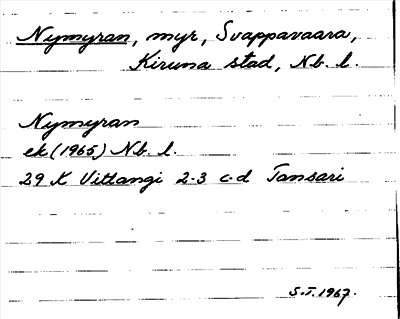 Nymyran, myr, Svappavaara,
Kiruna stad, Nb. l.
Nymyran
ek (1965) Nb. l.
29 K Vittangi 2-3 c-d Tansari
S.T. 1967.